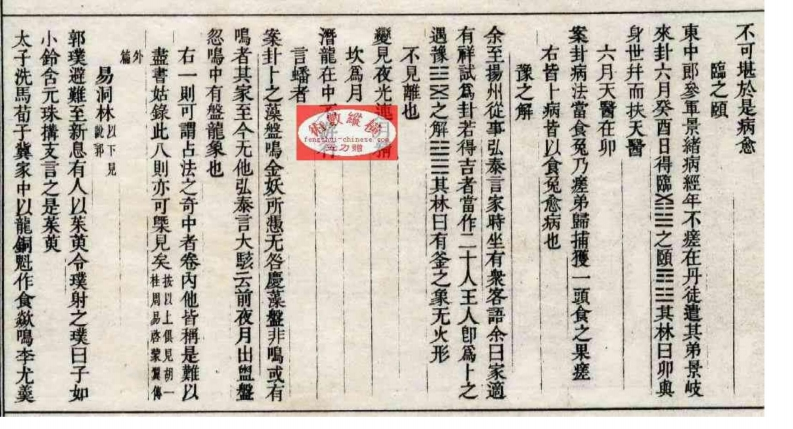 不可堪於是病愈
臨之頤
東中郎參軍景緒病經年不瘥在丹徒遣其弟景岐
來卦六月癸酉日得臨之頤其林曰卯與
身世幷而扶天醫
六月天醫在卯
案卦病法當食兔乃瘥弟歸捕獲一頭食之果瘥
右皆卜病皆以食兔愈病也
豫之解
余至揚州從事弘泰言家時坐有衆客語余曰家適
有祥試爲卦若得吉者當作二十人王人卽爲卜之
遇豫之解其林曰有釜之象无火形
不見離也
變見夜光連月
坎爲月
潛龍在中不
言蟠者
案卦卜之藻盤鳴金妖所憑无咎慶藻盤非鳴或有
鳴者其家至今无他弘泰言大駭云前夜月出盥盤
忽鳴中有盤龍象也
右一則可謂占法之奇中者卷內他皆稱是難以
盡書姑錄此八則亦可槩見矣按以上俱見胡一桂周易啓蒙翼傳
外篇
易洞林以下見說郛
郭璞避難至新息有人以茱萸令璞射之璞曰子如
小鈴含元珠搆支言之是茱萸
太子洗馬荀子驥家中以龍銅魁作食歘鳴李尤羹
術數縱橫
fengshui-chinese.com